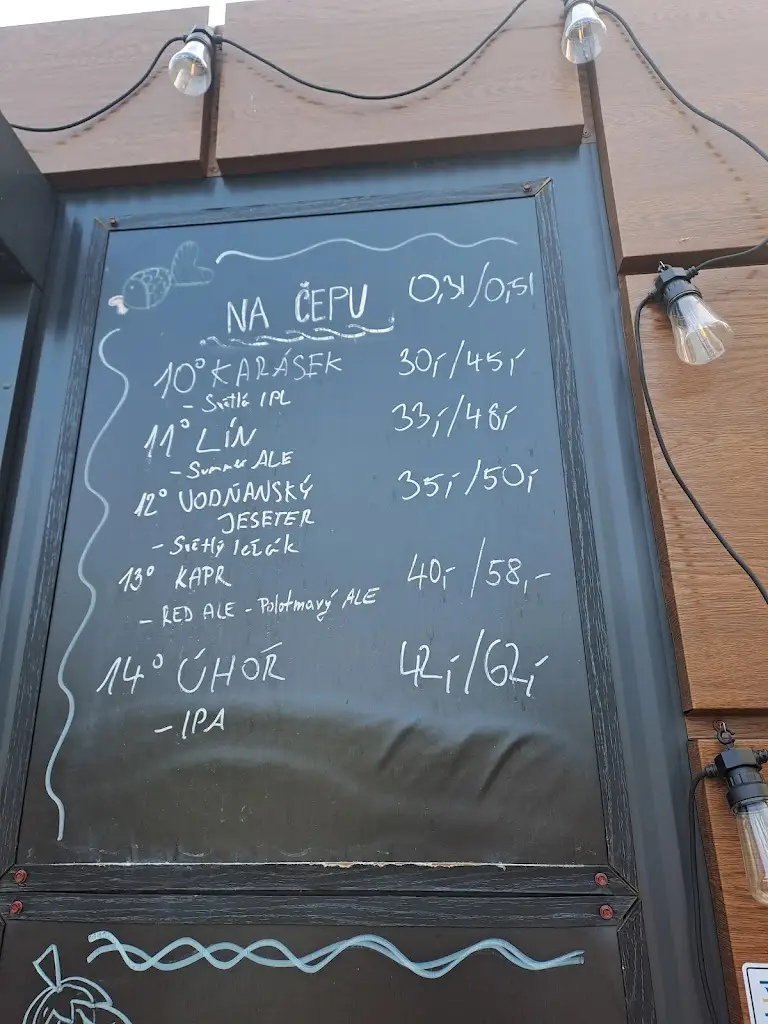 NA ČEPU 0,3l/0,5l
10° KARÁSEK 30,-/45,-
- Světlé IPL
11° LÍN 33,-/48,-
- Summer ALE
12° VODŇANSKÝ 35,-/50,-
JESETER
- Světlý ležák
13° KAPR 40,-/58,-
- RED ALE - Polotmavý ALE
14° ÚHOŘ 42,-/62,-
- IPA